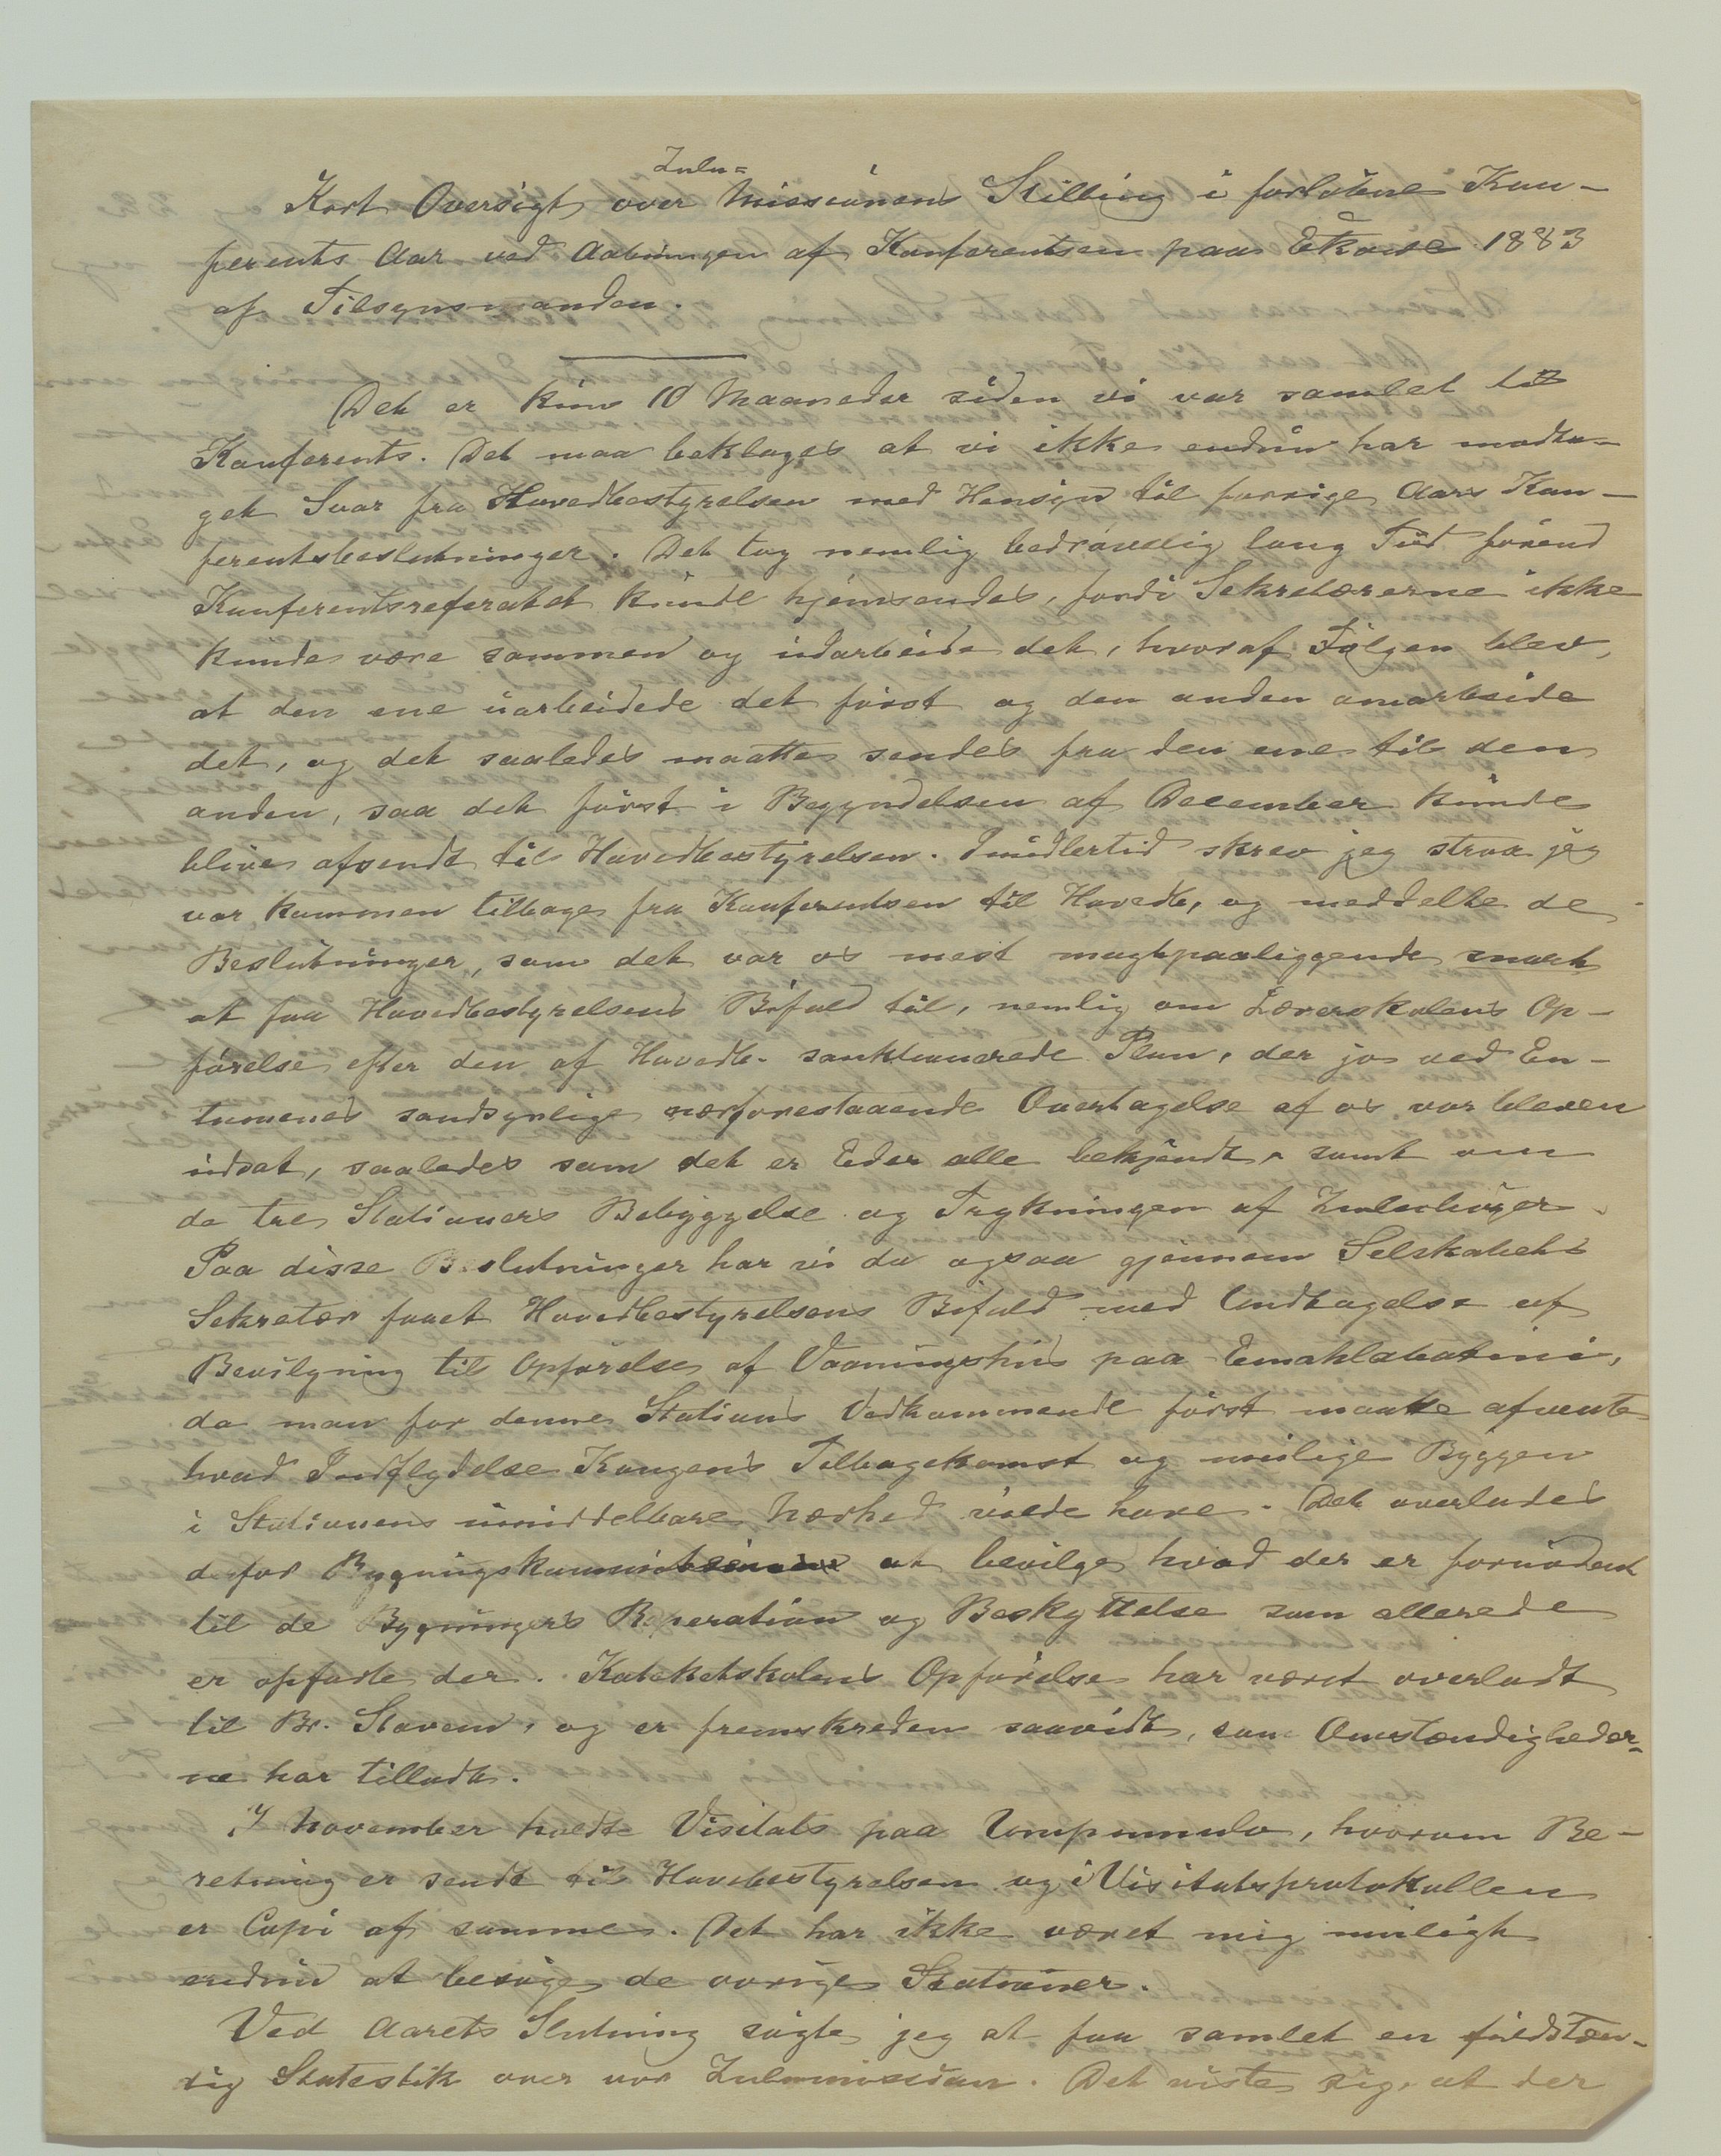 Kort Oversigt over Zulu=Missionens Stilling i forløbne Kon-
ferents Aar ved Aabningen af Konferentsen paa Ekowe 1883
af Tilsynsmanden.
Det er kun 10 Maaneder siden vi var samlet til
Konferents. Det maa beklages at vi ikke endnu har modta-
get Svar fra Hovedbestyrelsen med Hensyn til forrige Aars Kon-
ferentsbeslutninger. Det tog nemlig bedrøvelig lang Tid førend
Konferentsreferatet kunde hjemsendes, fordi Sekretærerne ikke
kunde være sammen og udarbeide det, hvoraf Følgen blev,
at den ene uarbeidede det først og den anden omarbeide
det, og det saaledes maatte sendes fra den ene til den
anden, saa det først i Begyndelsen af December kunde
blive afsendt til Hovedbestyrelsen. Imidlertid skrev jeg strax jeg
var kommen tilbage fra Konferentsen til Hovedb, og meddelte de
Beslutninger, som det var os mest magtpaaliggende snart
at faa Hovedbestyrelsens Bifald til, nemlig om Lærerskolens Op-
førelse efter den af Hovedb. sanktionerede Plan, der jo ved En-
tumenes sandsynlige nærforestaaende Overtagelse af os var bleven
udsat, saaledes som det er Eder alle bekjendt, samt om
de tre Stationers Bebyggelse og Trykningen af Zulubøger.
Paa disse Beslutninger har vi da ogsaa gjennem Selskabets
Sekretær faaet Hovedbestyrelsens Bifald med Undtagelse af
Bevilgning til Opførelse af Vaaningshus paa Emahlabatini,
da man for denne Stations Vedkommende først maatte afvente
hvad Indflydelse Kongens Tilbagekomst og mulige Byggen
i Stationens umiddelbare Nærhed vilde have. Det overlades
derfor Bygningskommissionen at bevilge hvad der er fornødent
til de Bygningers Reperation og Beskyttelse som allerede
er opførte der. Kateketskolens Opførelse har været overladt
til Br. Stavem, og er fremskreden saavidt, som Omstændigheder-
ne har tilladt.
I November holdte Visitats paa Umpumulo, hvorom Be-
retning er sendt til Hovedbestyrelsen og i Visitatsprotokollen
er Copi af samme. Det har ikke været mig muligt
endnu at besøge de øvrige Stationer.
Ved Aarets Slutning søgte jeg at faa samlet en fuldstæn-
dig Statestik over vor Zulumission. Det viste sig, at der